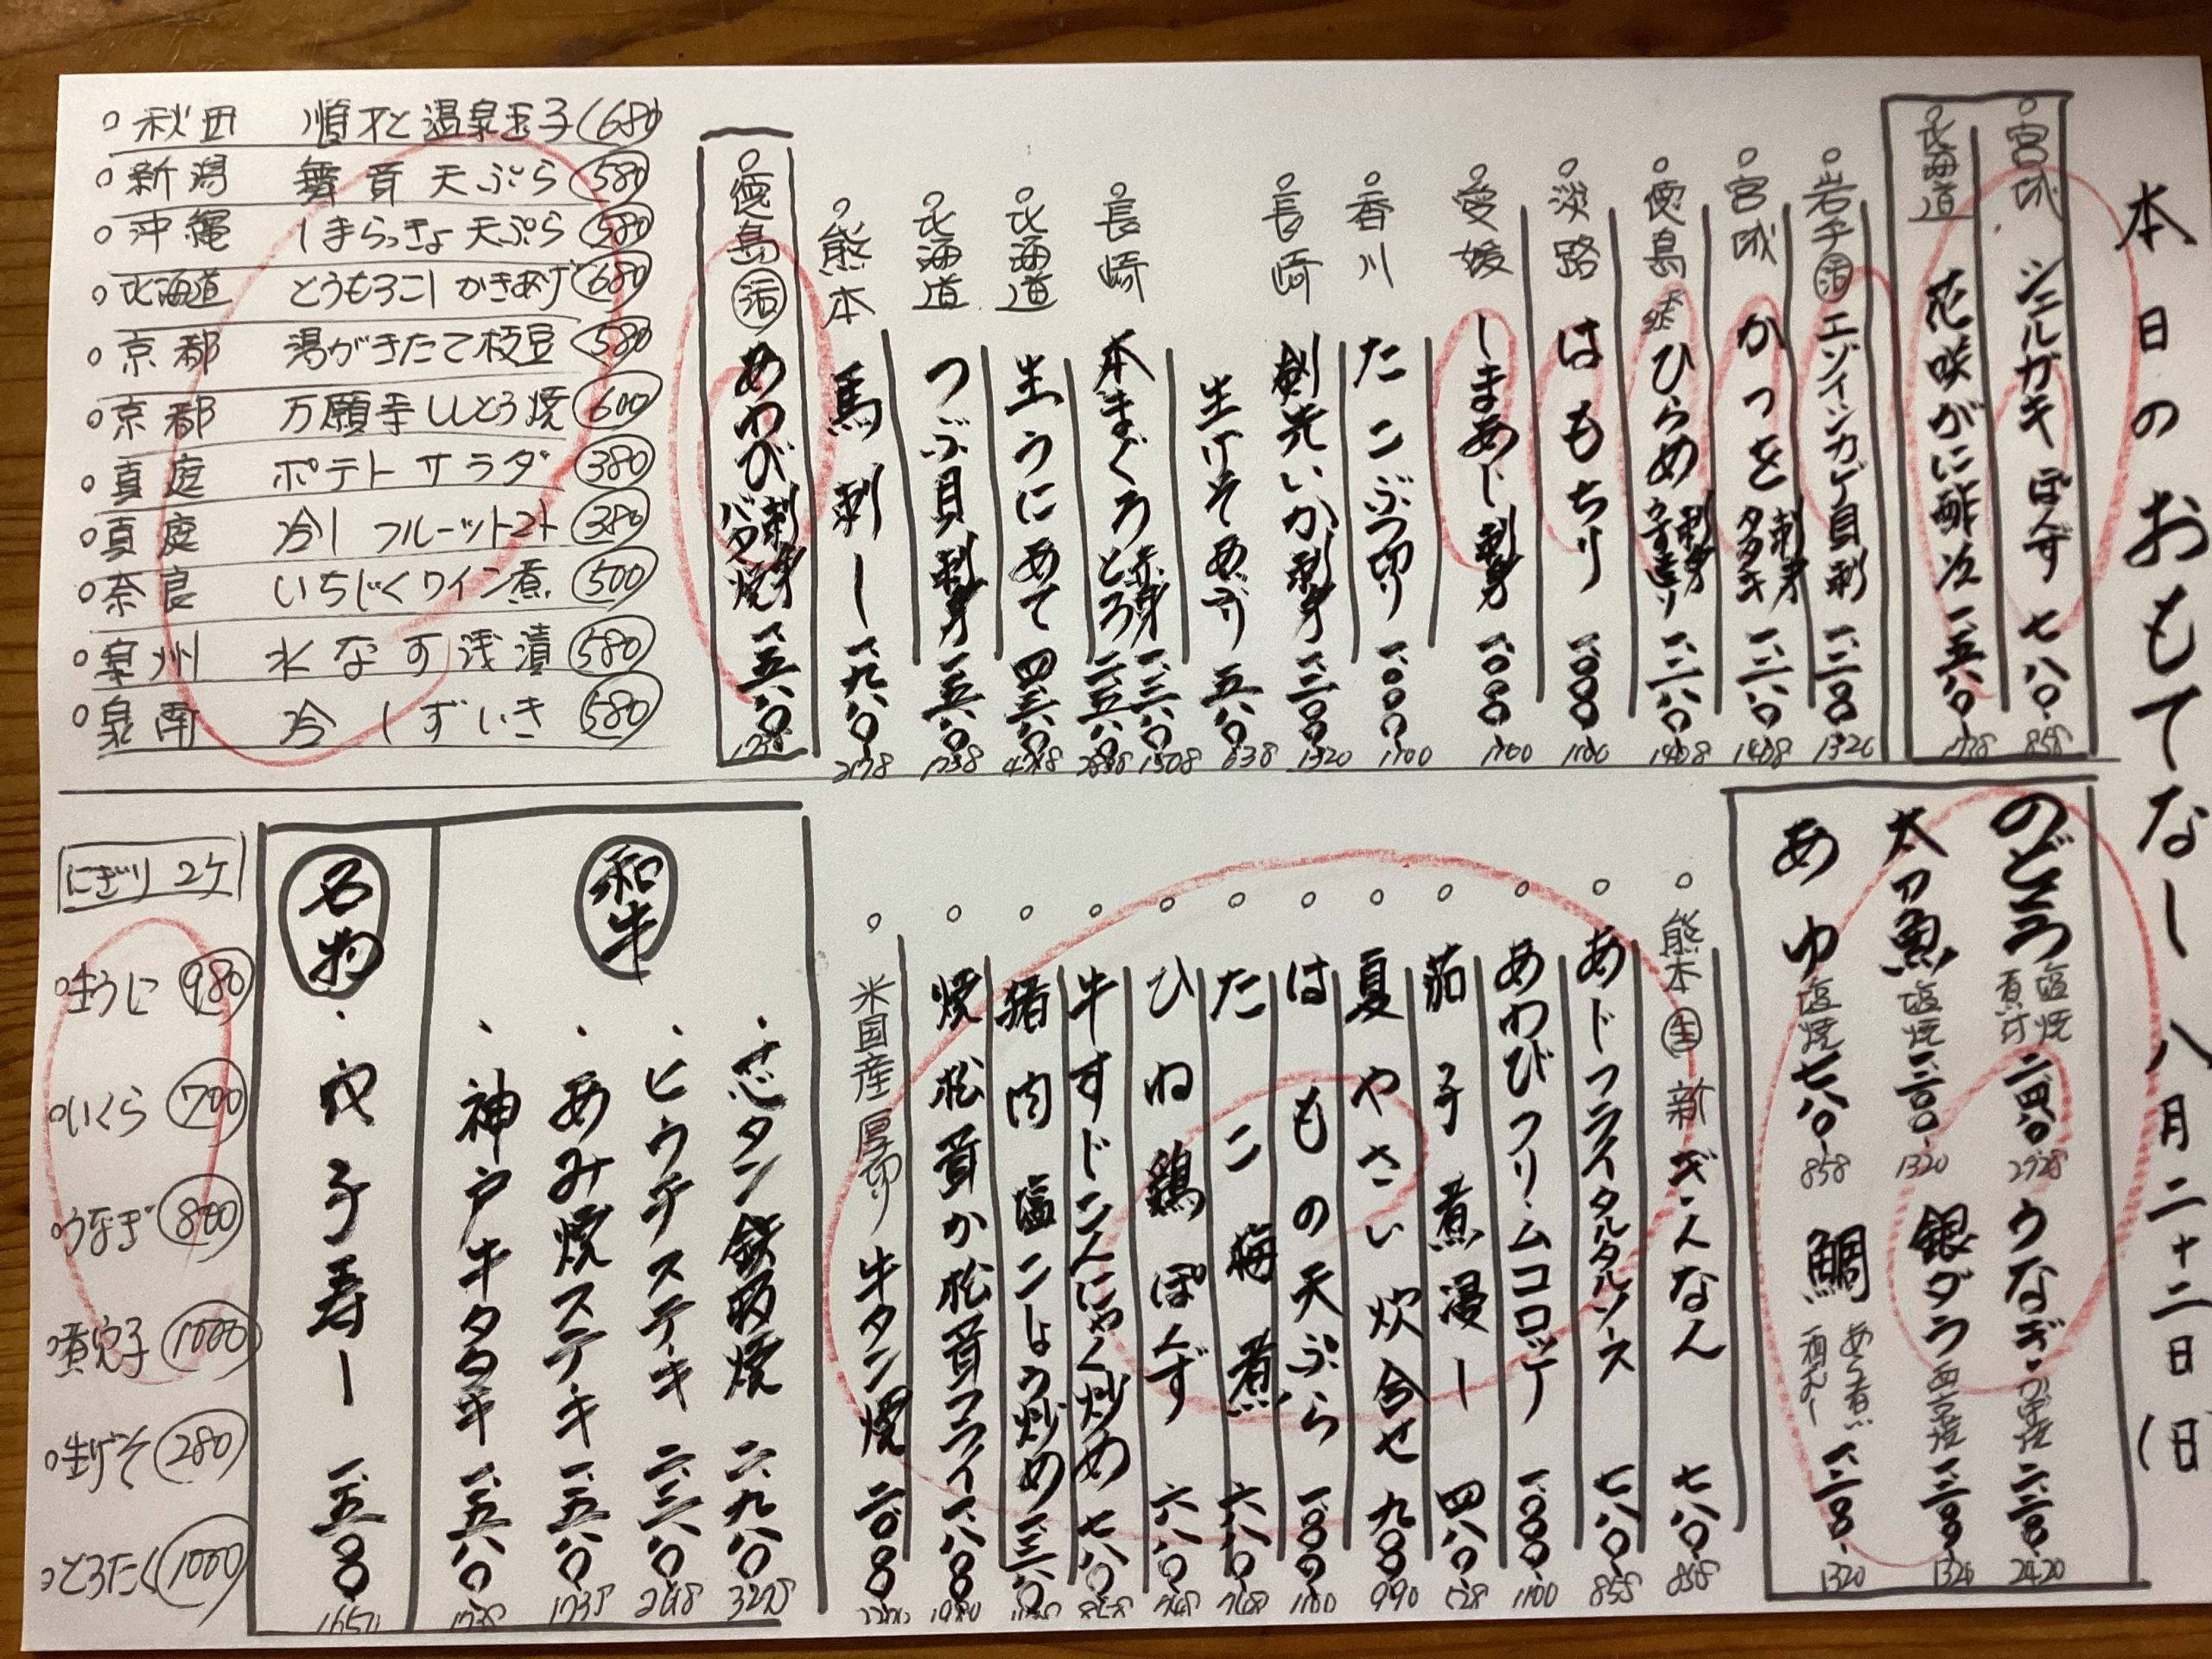 本日のおもてなし 八月二十二日(日
宮城 シェルガキぽんず 七八〇 858
北海道 花咲がに酢 一、五八〇
岩手 活 エゾイシカゲ貝刺 一、二〇〇 1320
宮城 かつを 刺身 タタキ 一、二八〇 1408
徳島 ひらめ 刺身 うす造り 一、二八〇 1408
淡路 はもちり 一、〇〇〇 1100
愛媛 しまあじ刺身 一、〇〇〇 1100
香川 たこぶつ切り 一、〇〇〇 1100
長崎 剣先いか刺身 一、二〇〇 1320
生げそあぶり 五八〇 638
長崎 本まぐろ 赤身 とろ 一、三八〇 二、五八〇
北海道 生うにあて 四、三八〇
北海道 つぶ貝刺身 一、五八〇 1738
熊本 馬刺し 一、九八〇 2178
徳島 活 あわび 刺身 バタ焼 一、五八〇
秋田 順才と温泉玉子 680
新潟 舞茸天ぷら 580
沖縄 しまらっきょ天ぷら 580
北海道 とうもろこしかきあげ 680
京都 湯がきたて枝豆 580
京都 万願寺ししとう焼 600
真庭 ポテトサラダ 380
真庭 冷しフルーツトマト 380
奈良 いちじくワイン煮 500
泉州 水なす浅漬 580
泉南 冷しずいき 580
のどぐろ 塩焼 煮付 2728
うなぎ 二、二〇〇 2420
太刀魚 塩焼 一、二〇〇 1320
銀ダラ 西京焼 一、二〇〇 1320
あゆ 塩焼 七八〇 858
鯛 あら煮 酒むし 一、二〇〇 1320
熊本 生 新ぎんなん 七八〇 858
あじフライタルタルソース 七八〇 858
あわびクリームコロッケ 一、〇〇〇 1100
茄子煮浸し 四八〇 528
夏やさい炊合せ 九〇〇 990
はもの天ぷら 一、〇〇〇 1100
たこ梅煮 六八〇 748
ひね鶏ぽんず 六八〇 748
牛すじこんにゃく炒め 七八〇 858
猪肉塩こしょう炒め
焼松茸か松茸フライ 一、八〇〇 1980
米国産厚切り牛タン焼 二、〇〇〇
和牛
・芯タン鉄板焼 二、九八〇 3278
・ヒウチステーキ
・あみ焼ステーキ 一、五八〇 1738
・神戸牛タタキ 一、五八〇 1738
名物
・穴子寿し 一、五〇〇 1650
にぎり 2ケ
生うに 980
いくら 700
うなぎ 800
煮穴子 1000
生げそ 280
とろたく 1000